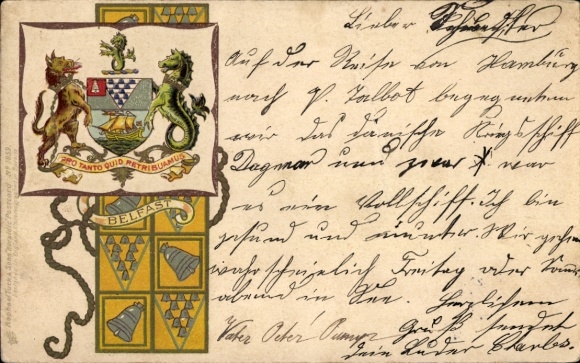 PRO TANTO QUID RETRIBUAMUS
BELFAST
Lieber
Auf der Reise von Hamburg
nach P. Talbot begegneten
wir das dänische Kriegsschiff
Dagmar und zwar war
es ein Vollschiff. Ich bin
gesund und munter. Wir gehen
wahrscheinlich Freitag oder Sonn
abend in See. Herzlichen
Gruß sendet
dein Bruder Charles.
Vater Peter